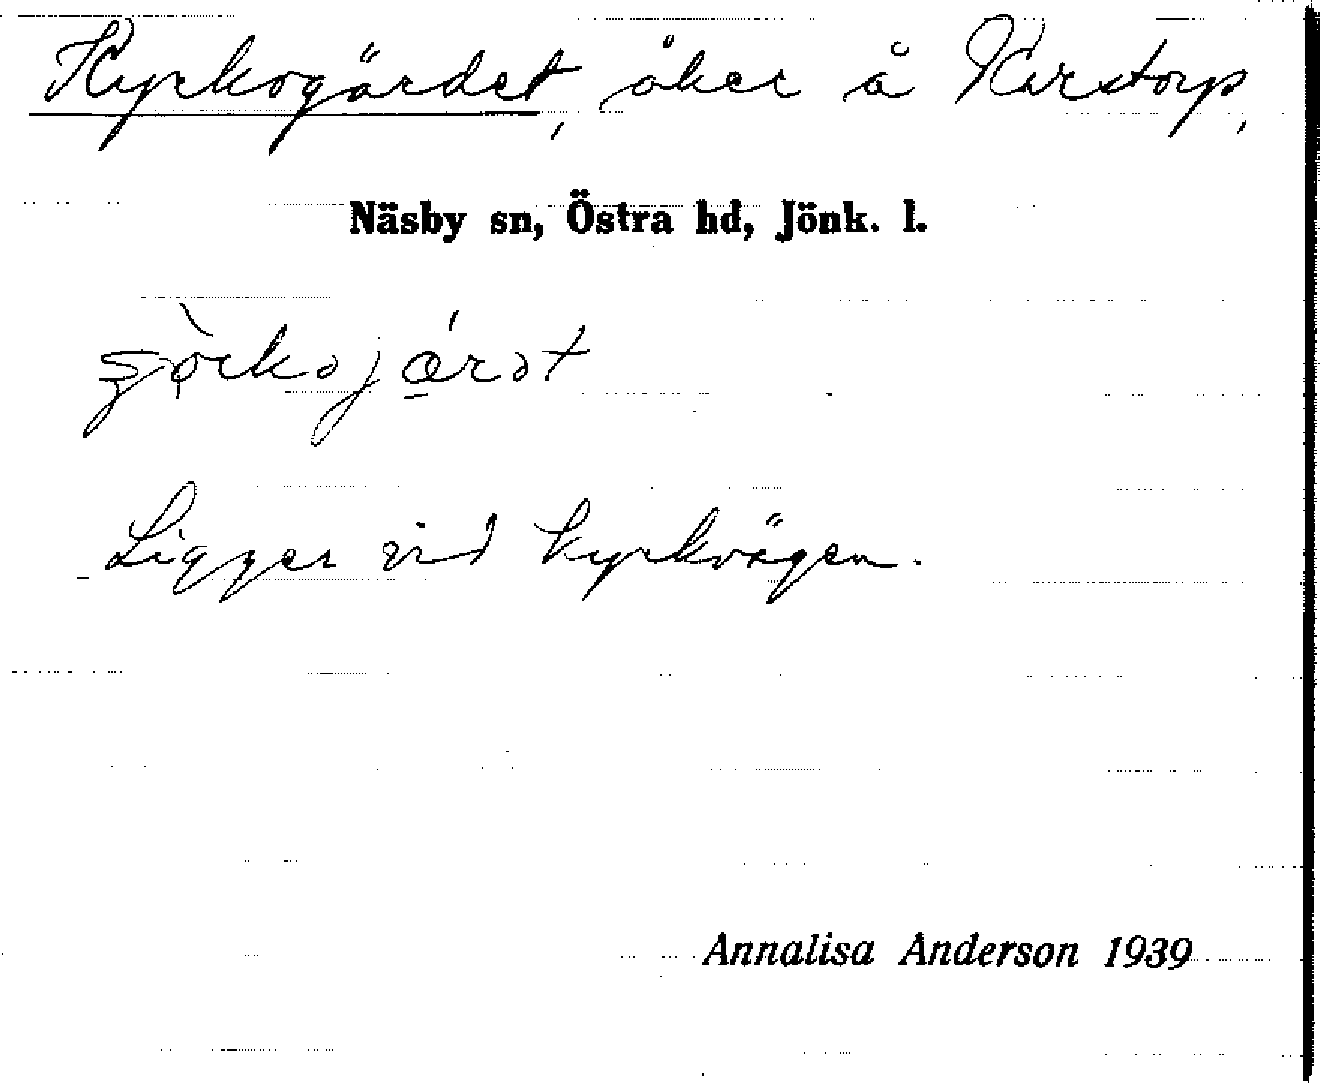 Kyrkogärdet, åker å Karstorp,
Näsby sn, Östra hd, Jönk. l.
Ligger vid kyrkvägen.
Annalisa Anderson 1939